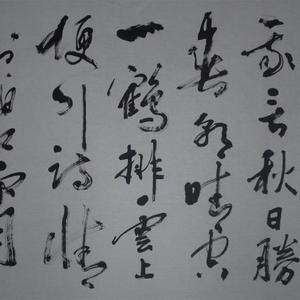 我言秋日勝
春朝晴空
一鶴排雲上
便引詩情